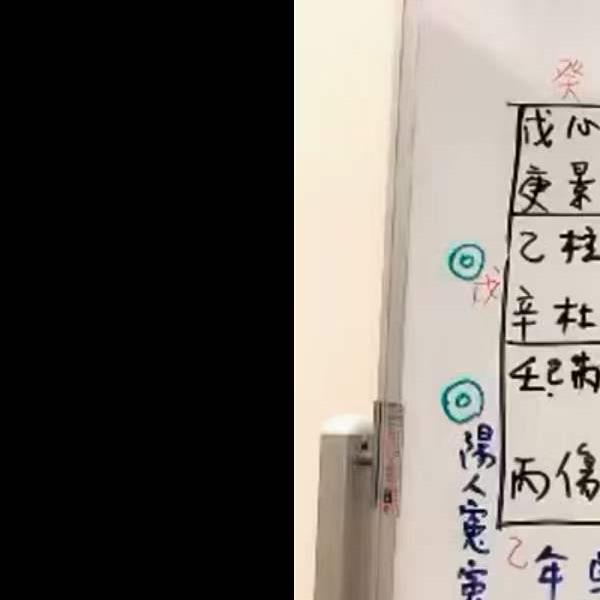 癸
戊心
庚景
乙柱
戊
辛杜
壬己芮
丙傷
陽人
乙
年